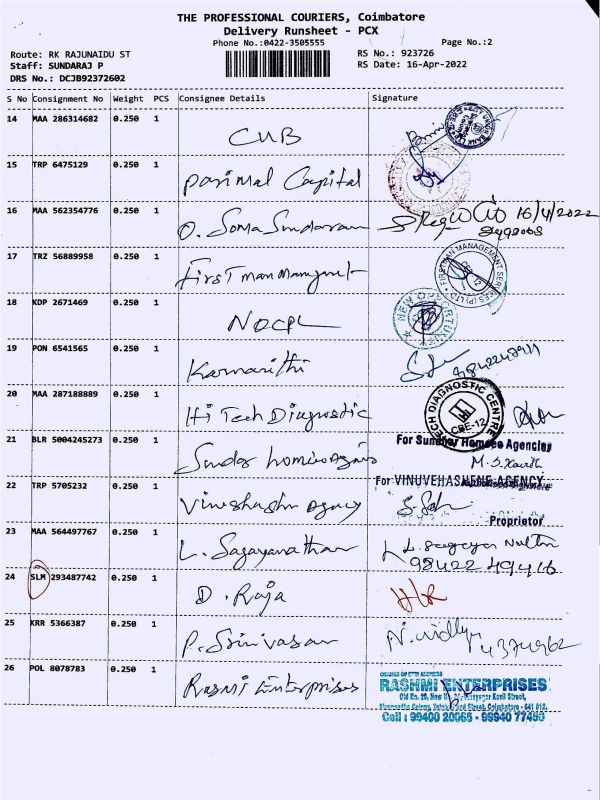 THE PROFESSIONAL COURIERS, Coimbatore
Delivery Runsheet - PCX
Phone No.:0422-3505555
Page No.:2
Route: RK RAJUNAIDU ST
RS No.: 923726
Staff: SUNDARAJ P
RS Date: 16-Apr-2022
DRS No.: DCJB92372602
S No Consignment No Weight PCS Consignee Details Signature
14 MAA 286314682 0.250 1
CUB
15 TRP 6475129 0.250 1
Parimal Capital
16 MAA 562354776 0.250 1
O. Soma Sundaram 16/4/2022
17 TRZ 56889958 0.250 1
First Man Mangment
FIRSTMAN MANAGEMENT SERVICES (P) LTD
18 KDP 2671469 0.250 1
NOCPL
NEW OPPORTUNITY
19 PON 6541565 0.250 1
20 MAA 287188889 0.250 1
Hi Tech Diagnostic
TECH DIAGNOSTIC CENTRE
CBE-12
21 BLR 5004245273 0.250 1
For Sundar Homoeo Agencies
22 TRP 5705232 0.250 1
For VINUVEHASHENE AGENCY
Proprietor
23 MAA 564497767 0.250 1
L. Sagayanathan
98422 49416
24 SLM 293487742 0.250 1
D. Raja
25 KRR 5366387 0.250 1
P. Srinivasan
26 POL 8078783 0.250 1
Rasmi Enterprises
RASHMI ENTERPRISES
Cell : 99400 20065 - 99940 77450